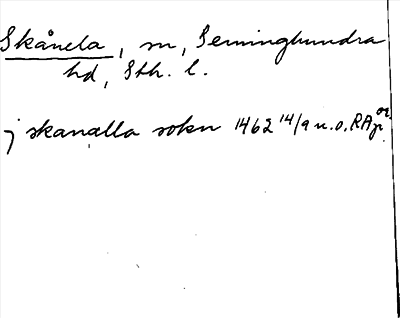 Skånela, sn, Seminghundra
hd, Sth. l.
j skanalla sokn 1462 14/9 u.o. RAp or